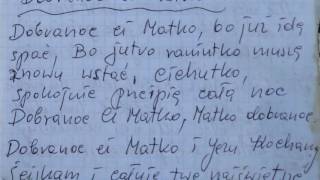 Dobranoc ci Matko, bo już idę
spać, Bo jutro raniutko muszę
znowu wstać, Cichutko,
spokojnie prześpię całą noc
Dobranoc Ci Matko, Matko dobranoc
Dobranoc ci Matko i Jemu Kochany
Ściskam i całuję twe najświętsze